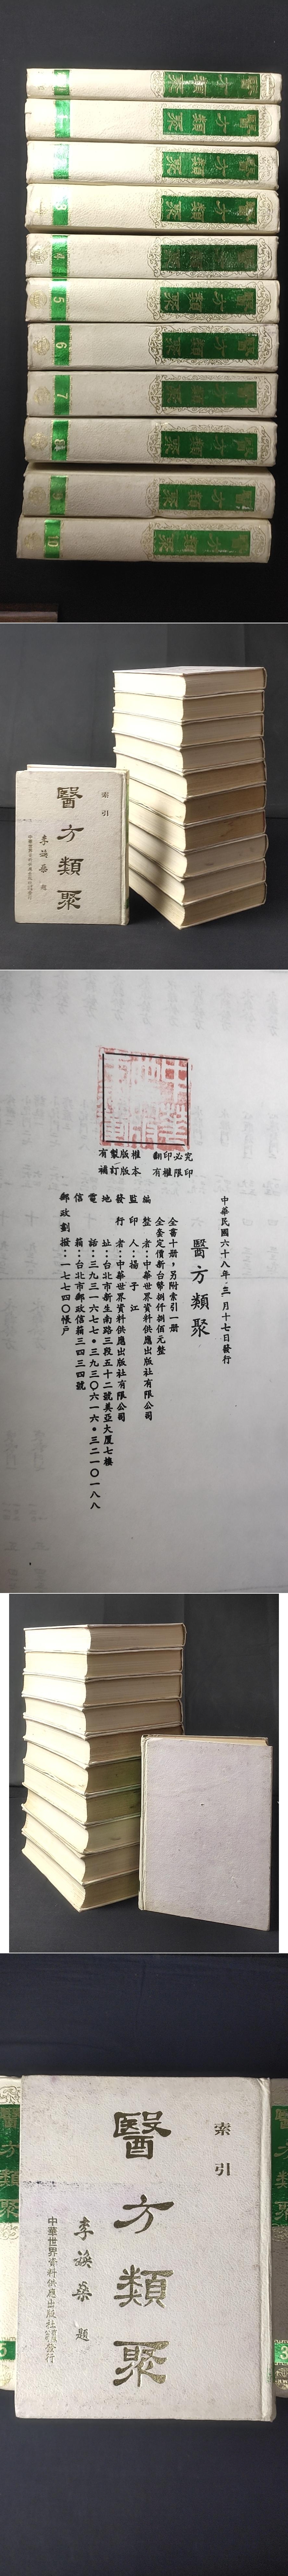 醫方類聚
醫方類聚
醫方類聚
醫方類聚 3
醫方類聚 4
醫方類聚 5
醫方類聚 6
醫方類聚 7
醫方類聚 8
醫方類聚
醫方類聚 10
索引
醫方類聚
李煥燊 題
有製版權 翻印必究
補訂版本 有權限印
中華民國六十八年三月十七日發行
醫方類聚
全書十册,另附索引一册
全套定價新台幣捌仟捌佰元整
編整者:中華世界資料供應出版社有限公司
監印人:楊子江
發行者:中華世界資料供應出版社有限公司
地址:台北市新生南路三段五十二號美亞大厦七樓
電話:三九三一六七七•三九三〇六一六•三二一〇一八八
信箱:台北市郵政信箱三四三四號
郵政劃撥:一七七四〇帳戶
索引
醫方類聚
李煥燊 題
中華世界資料供應出版社發行
醫方類聚
5
3